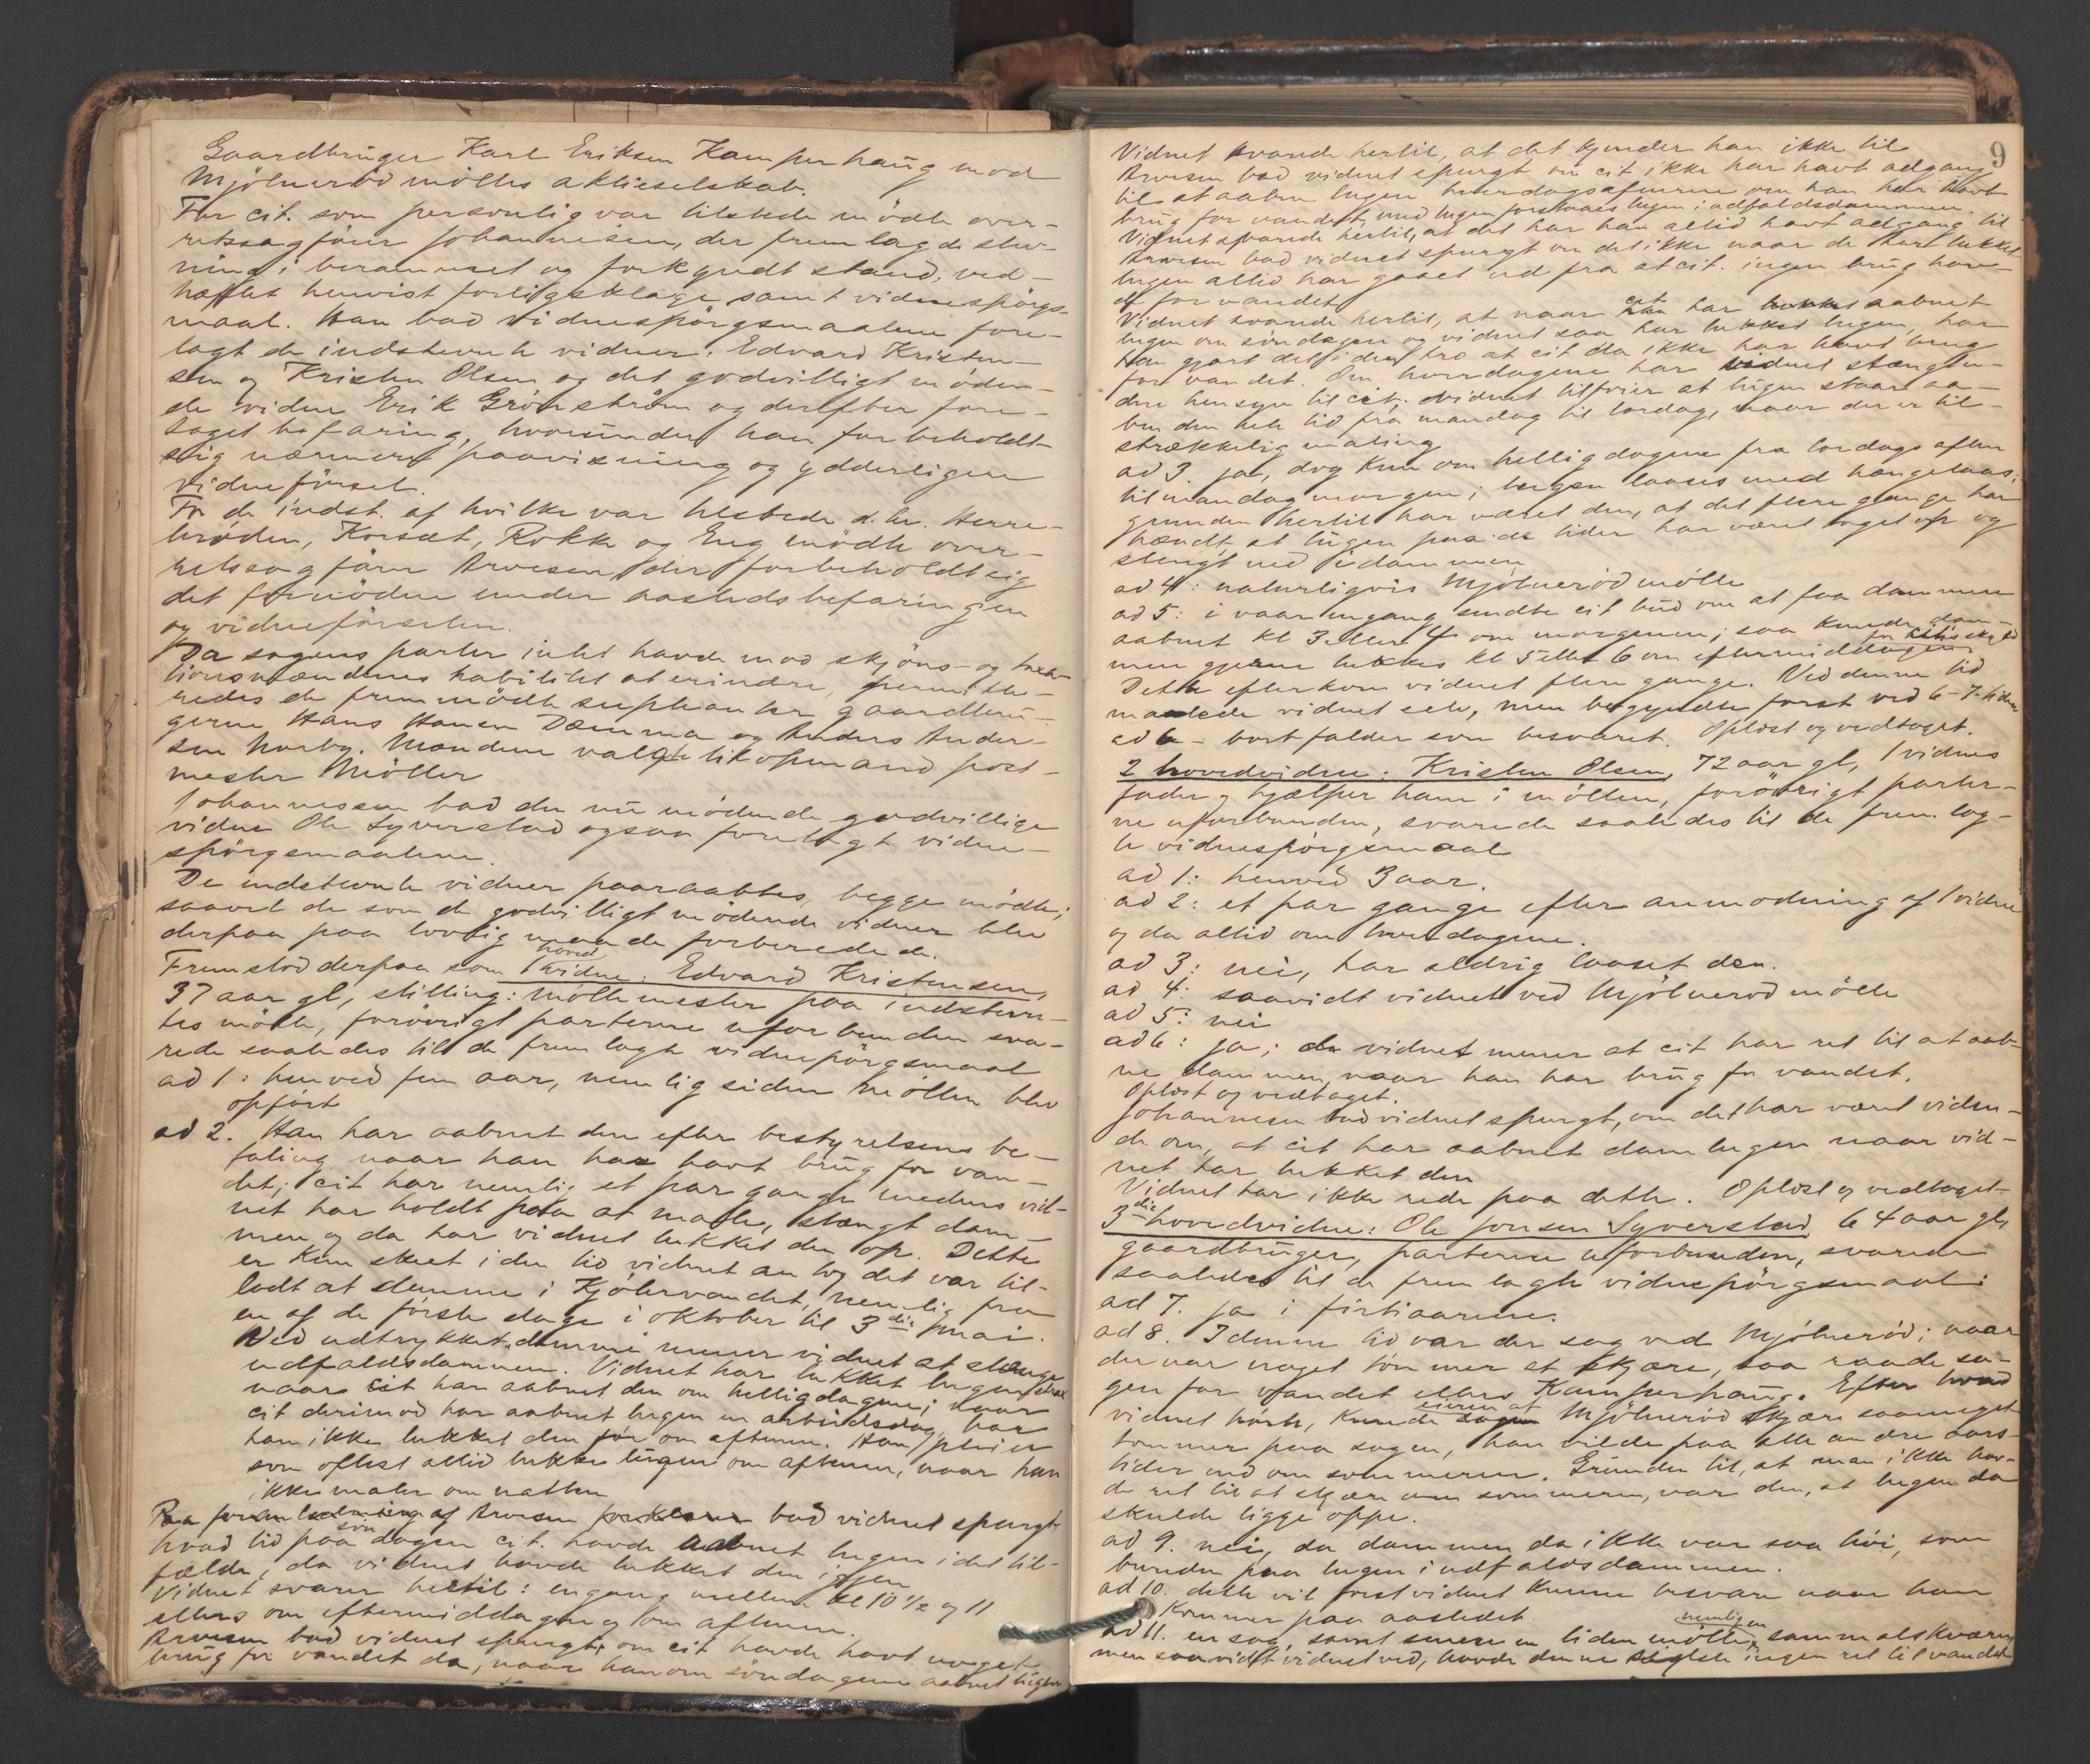 Gaardbruger Karl Eriksen Kamperhaug mod
Mjölneröd mölles aktieselskab.
For cit. som personlig var tilstede mödte over-
retssagförer Johannesen, der fremlagde stev-
ning i berammet og forkyndt stand, ved-
hæftet henvist forligsklage samt vidnespörgs-
maal. Han bad vidnespörgsmaalene fore-
lagt de indstevnte vidner: Edvard Kristen-
sen og Kristen Olsen og det godvilligt möden-
de vidne Erik Grönström og derefter fore-
taget befaring, hvorunder han forbeholdt
sig nærmere paavisning og yderligere
vidneförsel.
For de indst. af hvilke var tilstede d.hr. Herre-
bröden, Korsæt, Rokke og Eng mödte over-
retssagförer Arvesen, der forbeholdt sig
det fornödne under aastedsbefaringen
og vidneförselen.
Da sagens parter intet havde mod skjöns- og taxa-
tionsmændenes habilitet at erindre, permitte-
redes de fremmödte supleanter gaardbru-
gerne Hans Hansen Dæmma og Anders Ander-
sen Norby. Mændene valgte til opmand post-
mester Möller
Johannessen bad den nu mödende godvillige
vidne Ole Syverstad ogsaa forelagt vidne-
spörgsmaalene.
De indstevnte vidner paaraabtes, begge mödte;
saavel de som de godvilligt mödende vidner blev
derpaa paa lovlig maade forberedede.
Fremstod derpaa som 1 hovedvidne: Edvard Kristensen,
37 aar gl, stilling: möllemester paa indstevn-
tes mölle, forövrigt parterne uforbunden sva-
rede saaledes til de fremlagte vidnespörgsmaal
ad 1: henved fem aar, nemlig siden möllen blev
opfört
ad 2. Han har aabnet den efter bestyrelsens be-
faling naar han har havt brug for van-
det; cit har nemlig et par gange medens vid-
net har holdt paa at male, stængt dam-
men og da har vidnet lukket den op. Dette
er kun skeet i den tid vidnet antog det var til-
ladt at demme i Kjölervandet, nemlig fra
en af de förste dage i oktober til 3die mai.
Ved udtrykket demme mener vidnet at stænge
udfaldsdammen. Vidnet har lukket lugen strax
naar cit har aabnet den om helligdagene; naar
cit derimod har aabnet lugen en arbeidsdag, har
han ikke lukket den för om aftenen. Han pleier
som oftest altid lukke lugen om aftenen, naar han
ikke maler om natten
Paa foranledning af Arvesen bad vidnet spurgt
hvad tid paa söndagen cit. havde aabnet lugen i det til-
fælde, da vidnet havde lukket den igjen
Vidnet svarer hertil: engang mellem kl 10 1/2 og 11
ellers om eftermiddagen og om aftenen.
Arvesen bad vidnet spurgt, om cit havde havt noget
brug for vandet da, naar han om söndagene aabnet lugen
9
Vidnet svarede hertil, at det kjender han ikke til
Arvesen bad vidnet spurgt om cit ikke har havt adgang
til at aabne lugen hverdagsaftnerne om han har havt
brug for vandet, med lugen forstaaes lugen i udfaldsdammen.
Vidnet svarede hertil, at det har han altid havt adgang til
Arvesen bad vidnet spurgt om det ikke naar de har lukket
lugen altid har gaaet ud fra at cit. ingen brug hav-
de for vandet
Vidnet svarede hertil, at naar cit har aabnet
lugen om söndagen og vidnet saa har lukket lugen, har
han gjort det i den tro at cit da ikke har havt brug
for vandet. Om hverdagene har vidnet stængt u-
den hensyn til cit; vidnet tilföier at lugen staar aa-
ben den hele tid fra mandag til lordag, naar der er til-
strækkelig maling
ad 3. ja, dog kun om helligdagene fra lordags aften
til mandag morgen; lugen laases med hængelaas;
grunden hertil har været den, at det flere gange har
hændt, at lugen paa de tider har været taget op og
slengt ned i dammen
ad 4: naturligvis Mjölneröd mölle
ad 5: i vaar engang sendte cit bud om at faa dammen
aabnet kl 3 eller 4 om morgenen; saa kunde dam-
men gjerne lukkes kl 5 eller 6 om eftermiddagen
Dette efterkom vidnet flere gange. Ved denne tid
malede vidnet selv, men begyndte först ved 6-7-tiden
ad 6 - bortfalder som besvaret. Oplæst og vedtaget.
2 hovedvidne: Kristen Olsen, 72 aar gl, 1 vidnes
fader og hjælper ham i möllen, forövrigt parter-
ne uforbunden, svarede saaledes til de fremlag-
te vidnespörgsmaal
ad 1: henved 3 aar.
ad 2: et par gange efter anmodning af 1 vidne
og da altid om hverdagene.
ad 3: nei, har aldrig laaset den.
ad 4: saavidt vidnet ved Mjölneröd mölle
ad 5: nei
ad 6: ja; da vidnet mener at cit har ret til at aab-
ne dammen, naar han har brug for vandet.
Oplæst og vedtaget.
Johannesen bad vidnet spurgt, om det har været viden-
de om, at cit har aabnet damlugen naar vid-
net har lukket den
Vidnet har ikke rede paa dette. Oplæst og vedtaget
3die hovedvidne: Ole Jonsen Syverstad, 64 aar gl,
gaardbruger, parterne uforbunden, svarede
saaledes til de fremlagte vidnespörgsmaal:
ad 7. ja i firtiaarene.
ad 8. I denne tid var der sag ved Mjölneröd; naar
der var noget tömmer at skjære, saa raade sa-
gen for vandet ellers Kamperhaug. Efter hvad
vidnet hörte, kunde eieren af Mjölneröd skjære saameget
tömmer paa sagen, han vilde paa alle andre aars-
tider end om sommeren. Grunden til, at man ikke hav-
de ret til at skjære om sommeren, var den, at lugen da
skulde ligge oppe.
ad 9. nei, da dammen da ikke var saa höi, som
bunden paa lugen i udfaldsdammen.
ad 10. dette vil först vidnet kunne besvare naar han
kommer paa aastedet
ad 11. en sag, samt senere en liden mölle, nemlig en sammalskværn,
men saavidt vidnet ved, havde denne ingen ret til vandet